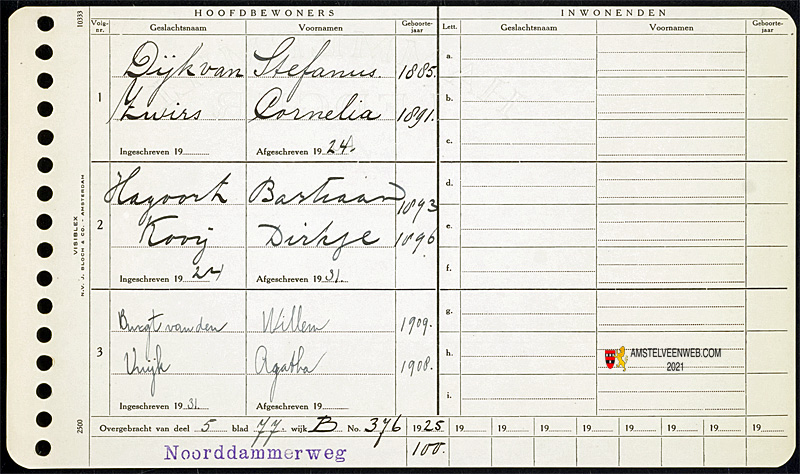 HOOFDBEWONERS INWONENDEN
10333 Volg-nr. Geslachtsnaam Voornamen Geboorte-jaar Lett. Geslachtsnaam Voornamen Geboorte-jaar
1 Dijk van Stefanus. 1885. a.
Zwirs Cornelia 1891. b.
Ingeschreven 19 Afgeschreven 19 24. c.
2 Hagoort Bastiaan 1893 d.
Kooij Dirkje 1896 e.
Ingeschreven 19 24 Afgeschreven 19 31. f.
3 Burgt van den Willem 1909. g.
Vuijk Agatha 1908. h.
Ingeschreven 19 31. Afgeschreven 19 i.
VISIBLEX
N.V. J. BLOCH & CO. - AMSTERDAM
AMSTELVEENWEB.COM
2021
2500 Overgebracht van deel 5 blad 77. wijk B No. 376 1925 19 19 19 19 19 19 19
Noorddammerweg 100.